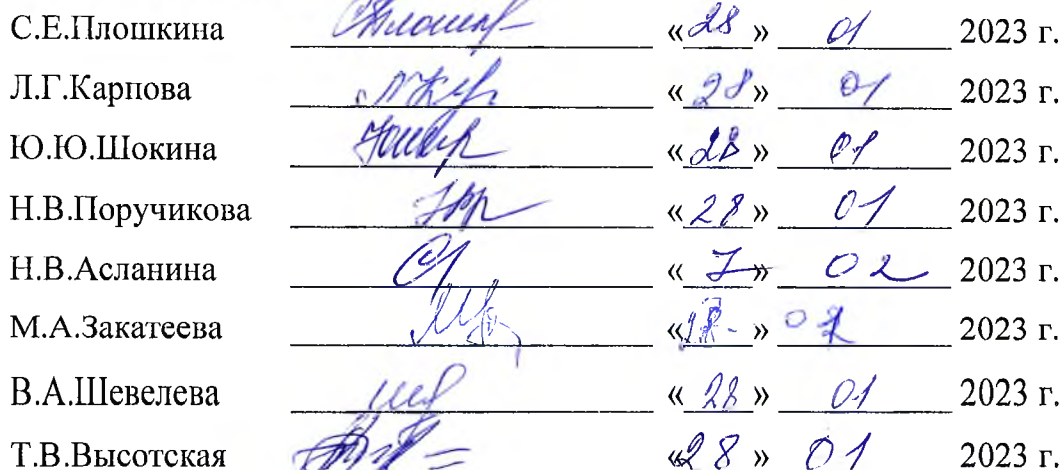 С.Е.Плошкина «28» 01 2023 г.
Л.Г.Карпова «28» 01 2023 г.
Ю.Ю.Шокина «28» 01 2023 г.
Н.В.Поручикова «28» 01 2023 г.
Н.В.Асланина «7» 02 2023 г.
М.А.Закатеева 2023 г.
В.А.Шевелева «28» 01 2023 г.
Т.В.Высотская «28» 01 2023 г.